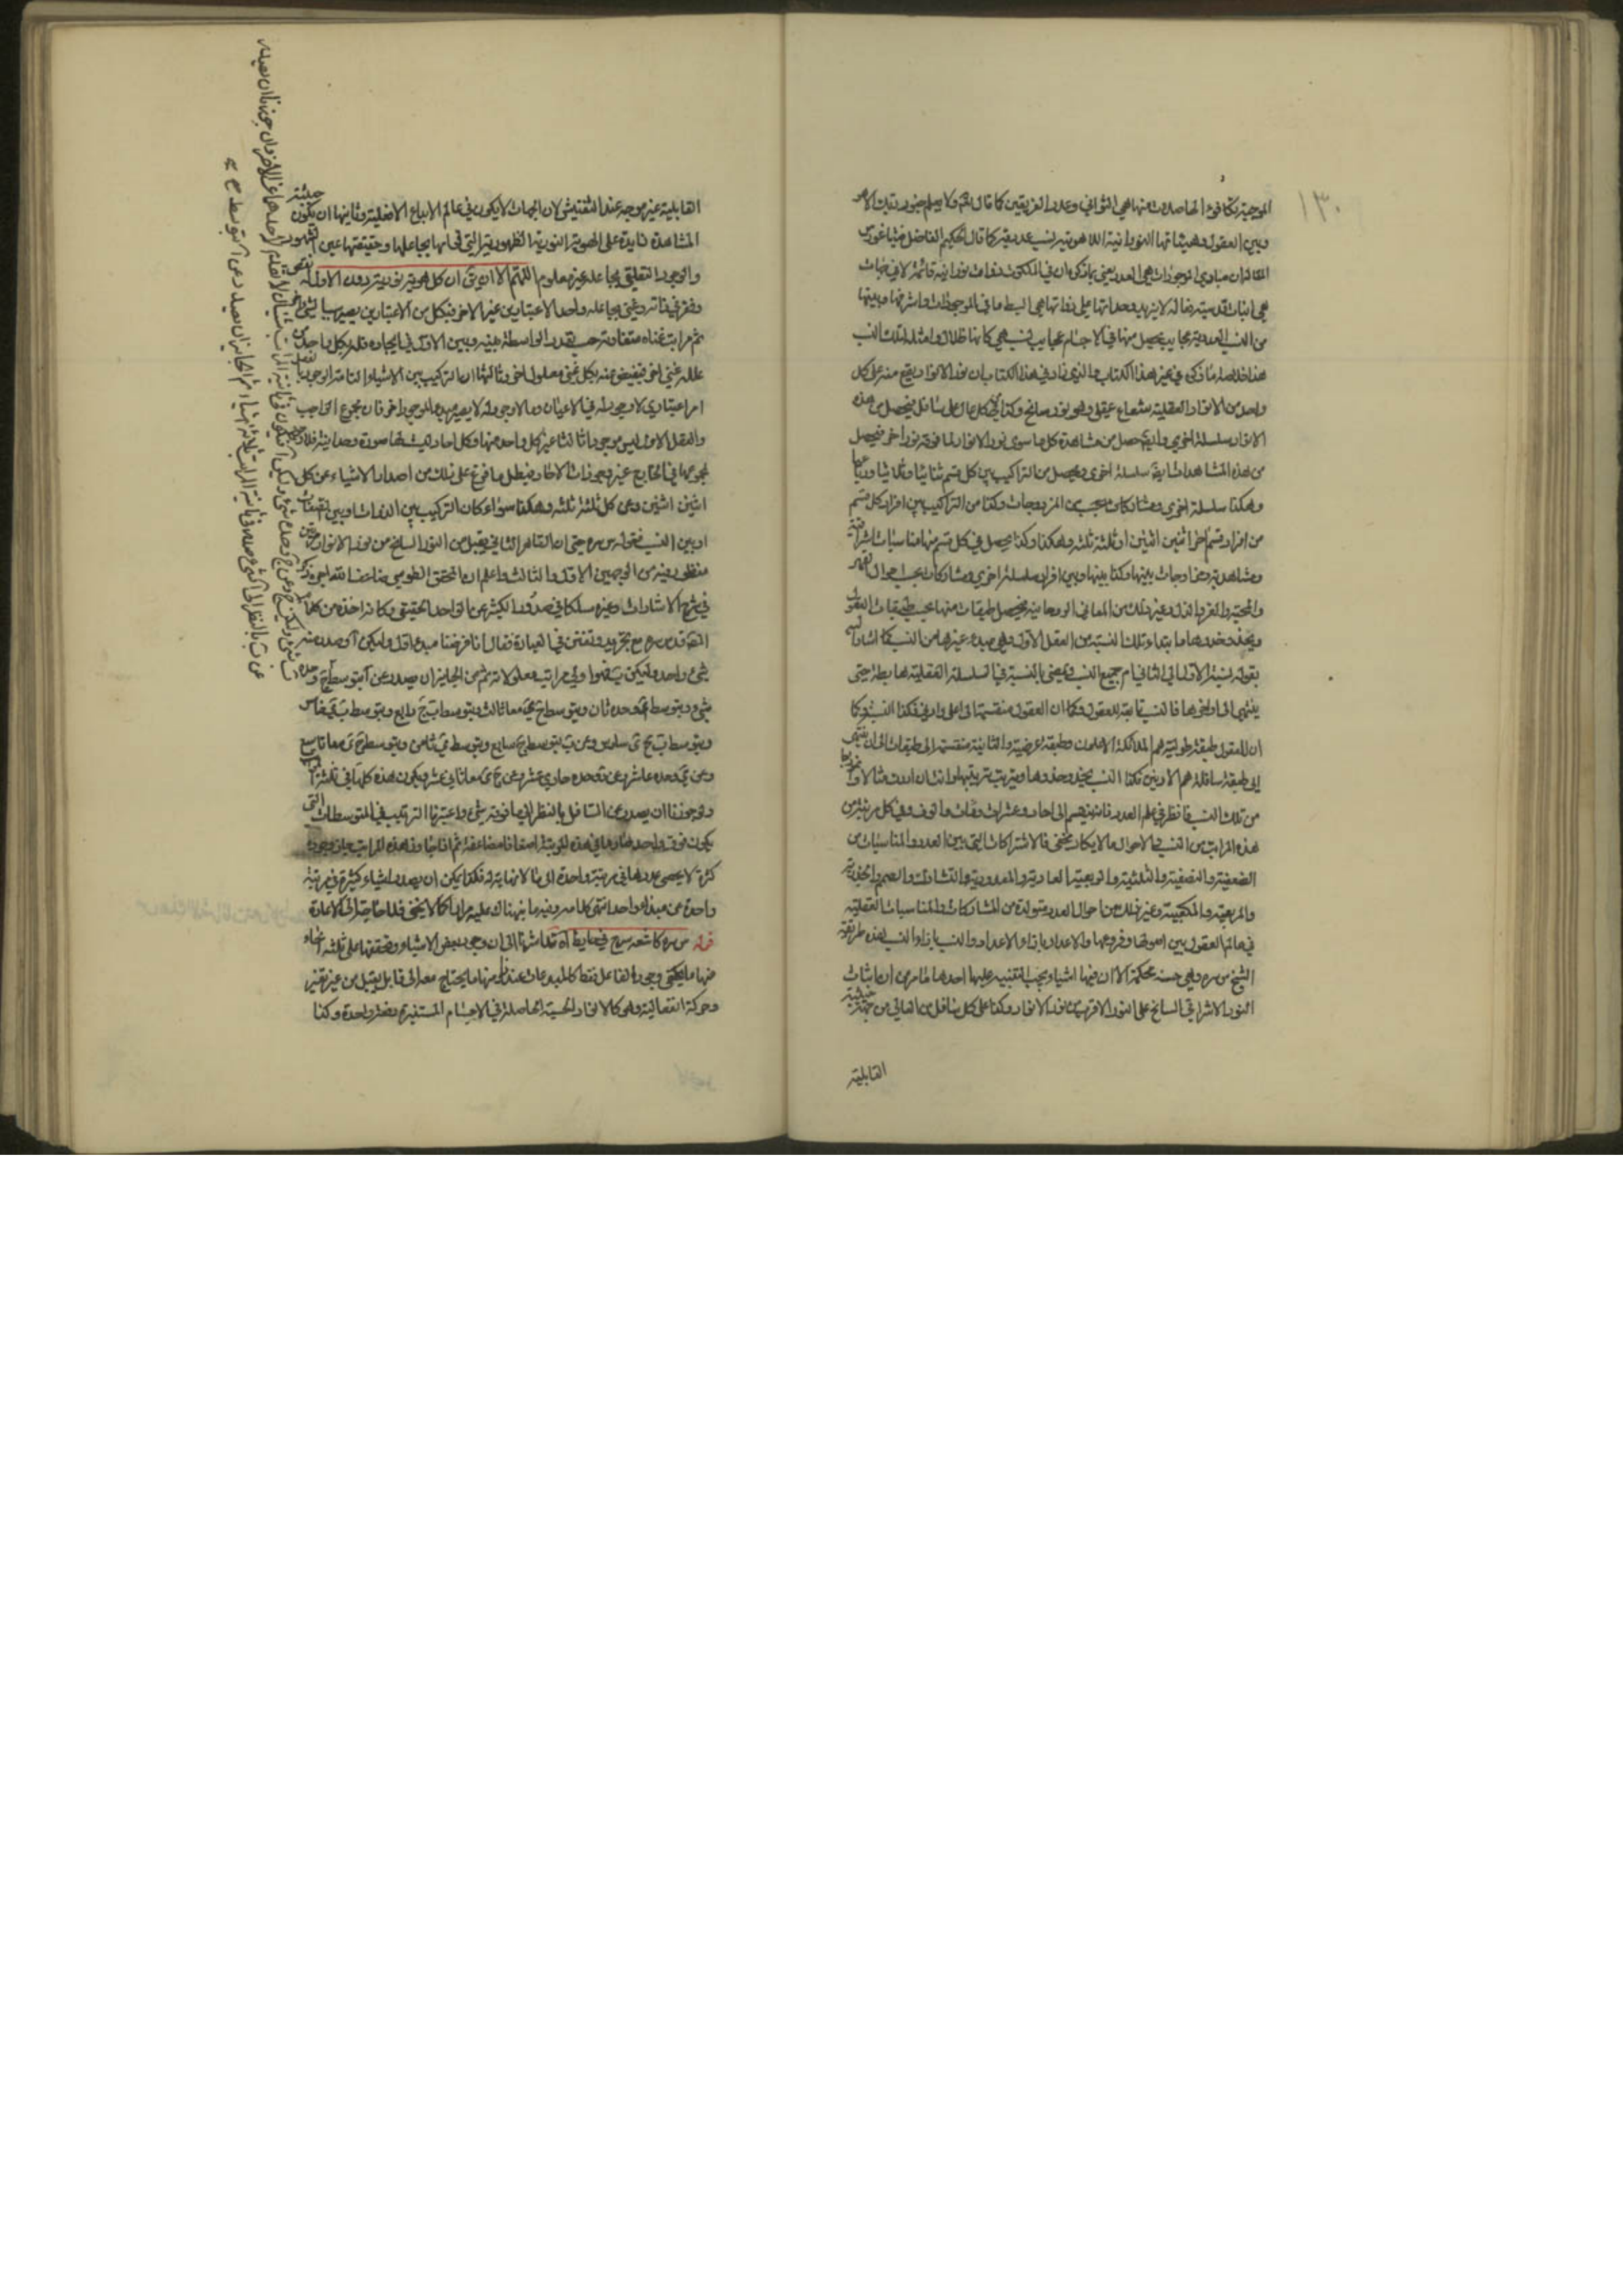 ١٣٠
الموجبة تكافؤ الحاصلات منها هي الثواني وعدد الفريقين كما قال تعالى ولا يعلم جنود ربك الا هو
وبين العقول وهيئاتها النورانية اللاهوتية نسب عددية كما قال الحكيم الفاضل فيثاغورس
القائل ان مبادي الموجودات هي العدد يعني بما ذكر ان في الملكوت ذوات نورانية قائمة لا في جهات
هي انيات قدسية فعالة لا يزيد وحداتها على ذواتها هي ابسط ما في الموجودات واشرفها وبينها
من النسب العددية عجايب يحصل منها في الاجسام عجايب نسب هي كانها ظلال وامثلة لتلك النسب
هذا خلاصة ما ذكر في غير هذا الكتاب والذي زاد في هذا الكتاب ان نور الانوار يقع منه على كل
واحد من الانوار العقلية شعاع عقلي وهو نور سانح وكذا في كل عال على سافل فيحصل من هذه
الانوار سلسلة اخرى وايضا حصل من مشاهدة كل ما سوى نور الانوار لما فوقه نور اخر فيحصل
من هذه المشاهدات ايضا سلسلة اخرى ويحصل من التراكيب بين كل قسم ثنائيا وثلاثيا ورباعيا
وهكذا سلسلة اخرى ومشاركات بحسب المزدوجات وكذا من التراكيب بين افراد كل قسم
من افراد قسم آخر اثنين اثنين او ثلثة ثلثة وهكذا وكذا يحصل في كل قسم منها مناسبات اشراقية
ومشاهدية وازدواجات بينها وكذا بينها وبين افراد سلسلة اخرى ومشاركات بحسب احوال القهر
والمحبة والعز والذل وغير ذلك من المعاني الروحانية فيحصل طبقات منها بحسب طبقات العقول
ويحذو حذوها ما ابتداء تلك النسبة من العقل الاول وهي مبدء غيرها من النسب كما اشار اليه
بقوله نسبة الاول الى الثاني ام جميع النسب ويمضي بالنسبة في السلسلة العقلية هابطة حتى
ينتهي الى اواخرها فالنسب تابعة للعقول فكما ان العقول منقسمة الى اعلى وادنى فكذا النسب وكما
ان للعقول طبقة طولية هم الملائكة الاعلون وطبقة عرضية والثانية منقسمة الى طبقات الى ان ينتهي
الى طبقة سافلة هم الادنين فكذا النسب يحذو حذوها ويترتب ترتيبها وان شان اردت مثالا
من تلك النسب فانظر في علم العدد فانه ينقسم الى احاد وعشرات ومئات والوف وفي كل مرتبة من
هذه المراتب من النسب والاحوال ما لا يكاد يخفى فالاشتراكات التي بين العدد والمناسبات من
الضعفية والنصفية والثلثية والربعية العادية والمعدودية والتشارك والصم والجذرية
والمربعية والمكعبية وغير ذلك من احوال العدد متولدة من المشاركات والمناسبات العقلية
في عالم العقول بين اصولها وفروعها والاعداد بازاء الاعداد والنسب بازاء النسب هذه طريقة
الشيخ س سره وهي حسنة محكمة الا ان فيها اشياء يجب التنبيه عليها احدها ما مر من ان اثبات
النور الاشراقي السانح على النور الاقرب من نور الانوار وكذا على كل سافل من العالي من جهة حيثية
القابلية
القابلية غير موجه عند التفتيش لان الجهات لا يكون في عالم الابداع الا فعلية وثانيها ان يكون حيثية
المشاهدة زايدة على الهوية النورية الظهورية التي في انها بجاعلها وحقيقتها عين الظهور
والوجود التعلقي بجاعله غير معلوم اللهم الا ان يق ان كل هوية نورية دون الاول له
وفقر في ذاته وغنى بجاعله واحد الاعتبارين غير الاخر فبكل من الاعتبارين يصير سببا لشيء
ثم مراتب غناه متفاوتة حسب تعدد الواسطة بينه وبين الاول في ايجاده فله بكل واحد من
علله غنى اخر فيفيض عنه بكل غنى معلول اخر وثالثها ان التركيب بين الاشياء التامة الوجود
امر اعتباري لا وجود له في الاعيان وما لا وجود له لا يصير مبدء لموجود اخر فان مجموع الواجب
والعقل الاول ليس موجودا ثالثا غير كل واحد منهما وكل احاد ليست لها صورة وحدانية فلا وجود
لمجموعها في الخارج غير وجودات الاحاد فيبطل ما فرع على ذلك من اصدار الاشياء عن كل
اثنين اثنين وعن كل ثلثة ثلثة وهكذا سواء كان التركيب بين الذوات او بين الصفات
او بين النسب فقوله س سره حتى ان القاهر الثاني يقبل من النور السانح من نور الانوار مرتين
منظور فيه من الوجهين الاول والثالث واعلم ان المحقق الطوسي
في شرح الاشارات وغيره سلكا في صدور الكثير عن الواحد الحقيقي وكانه اخذه من كلام
المص قدس سره مع تجريد وتفنن في العبارة فقال اذا فرضنا مبدء اول وليكن آ وصدر منه
شيء واحد وليكن ب فهو اولى مراتب معلولاته ثم من الجايز ان يصدر عن آ بتوسط ب ج وحده
شيء وبتوسط د وحده ثان وبتوسط ج د معا ثالث وبتوسط ب ج رابع وبتوسط ب د خامس
وبتوسط ب ج د سادس وعن ب بتوسط ج سابع وبتوسط د ثامن وبتوسط ج د معا تاسع
وعن ج وحده عاشر وعن د وحده حادي عشر وعن ج د معا ثاني عشر ويكون هذه كلها في ثالثة المراتب
ولو جوزنا ان يصدر عن السافل بالنظر الى ما فوقه شيء واعتبرنا الترتيب في المتوسطات التي
يكون فوق واحدة صار ما في هذه المرتبة اضعافا مضاعفة ثم اذا جاوزنا هذه المراتب جاز وجود
كثرة لا يحصى عددها في مرتبة واحدة الى ما لا نهاية له فكذا يمكن ان يصدر اشياء كثيرة في مرتبة
واحدة عن مبدء واحد انتهى كلامه وفيه ما نبهناك عليه مرارا كما لا يخفى فلا حاجة الى الاعادة
قوله س سره كاشعة سرج في حايط آه قد اشرنا الى ان وجود بعض الاشياء وتحققها على ثلثة انحاء
منها ما يكفي وجود الفاعل فقط كالمبدعات عندنا ومنها ما يحتاج معه الى قابل يقبل من غير تغير
وحركة انفعالية وهو كالانوار الحسية الحاصلة في الاجسام المستنيرة دفعة واحدة وكذا